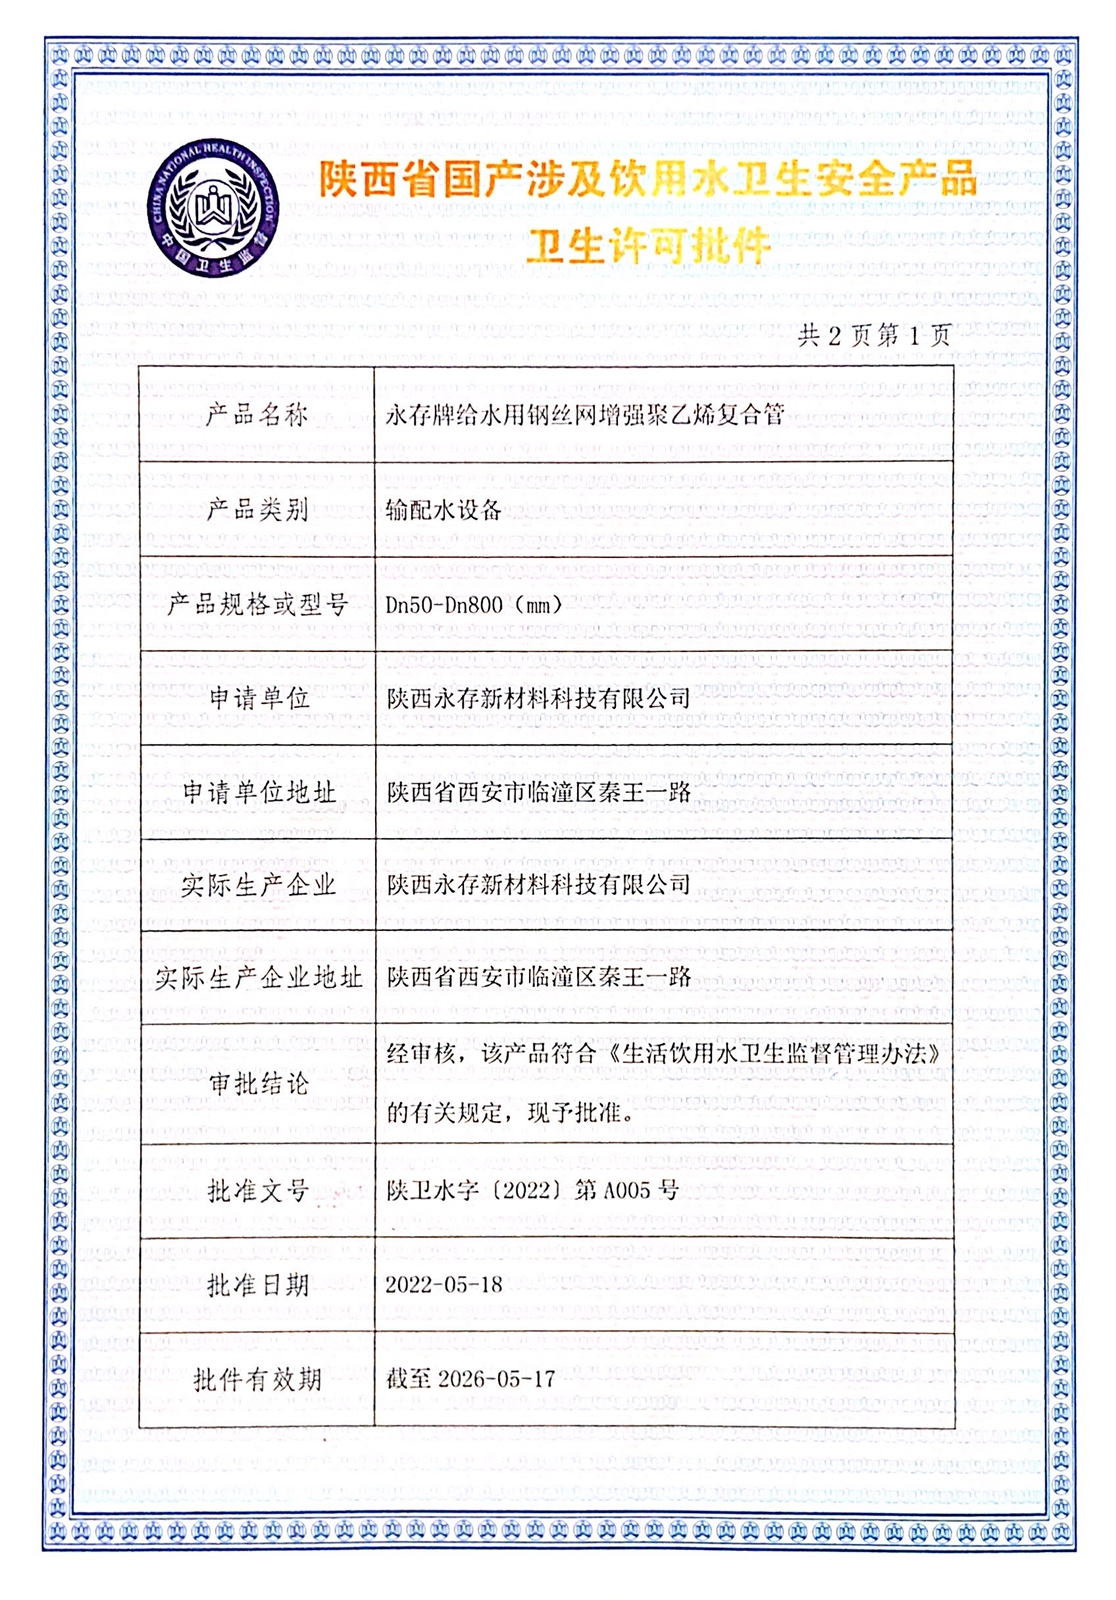 CHINA NATIONAL HEALTH INSPECTION
中国卫生监督
陕西省国产涉及饮用水卫生安全产品
卫生许可批件
共 2 页第 1 页
产品名称 永存牌给水用钢丝网增强聚乙烯复合管
产品类别 输配水设备
产品规格或型号 Dn50-Dn800（mm）
申请单位 陕西永存新材料科技有限公司
申请单位地址 陕西省西安市临潼区秦王一路
实际生产企业 陕西永存新材料科技有限公司
实际生产企业地址 陕西省西安市临潼区秦王一路
审批结论 经审核，该产品符合《生活饮用水卫生监督管理办法》
的有关规定，现予批准。
批准文号 陕卫水字〔2022〕第 A005 号
批准日期 2022-05-18
批件有效期 截至 2026-05-17